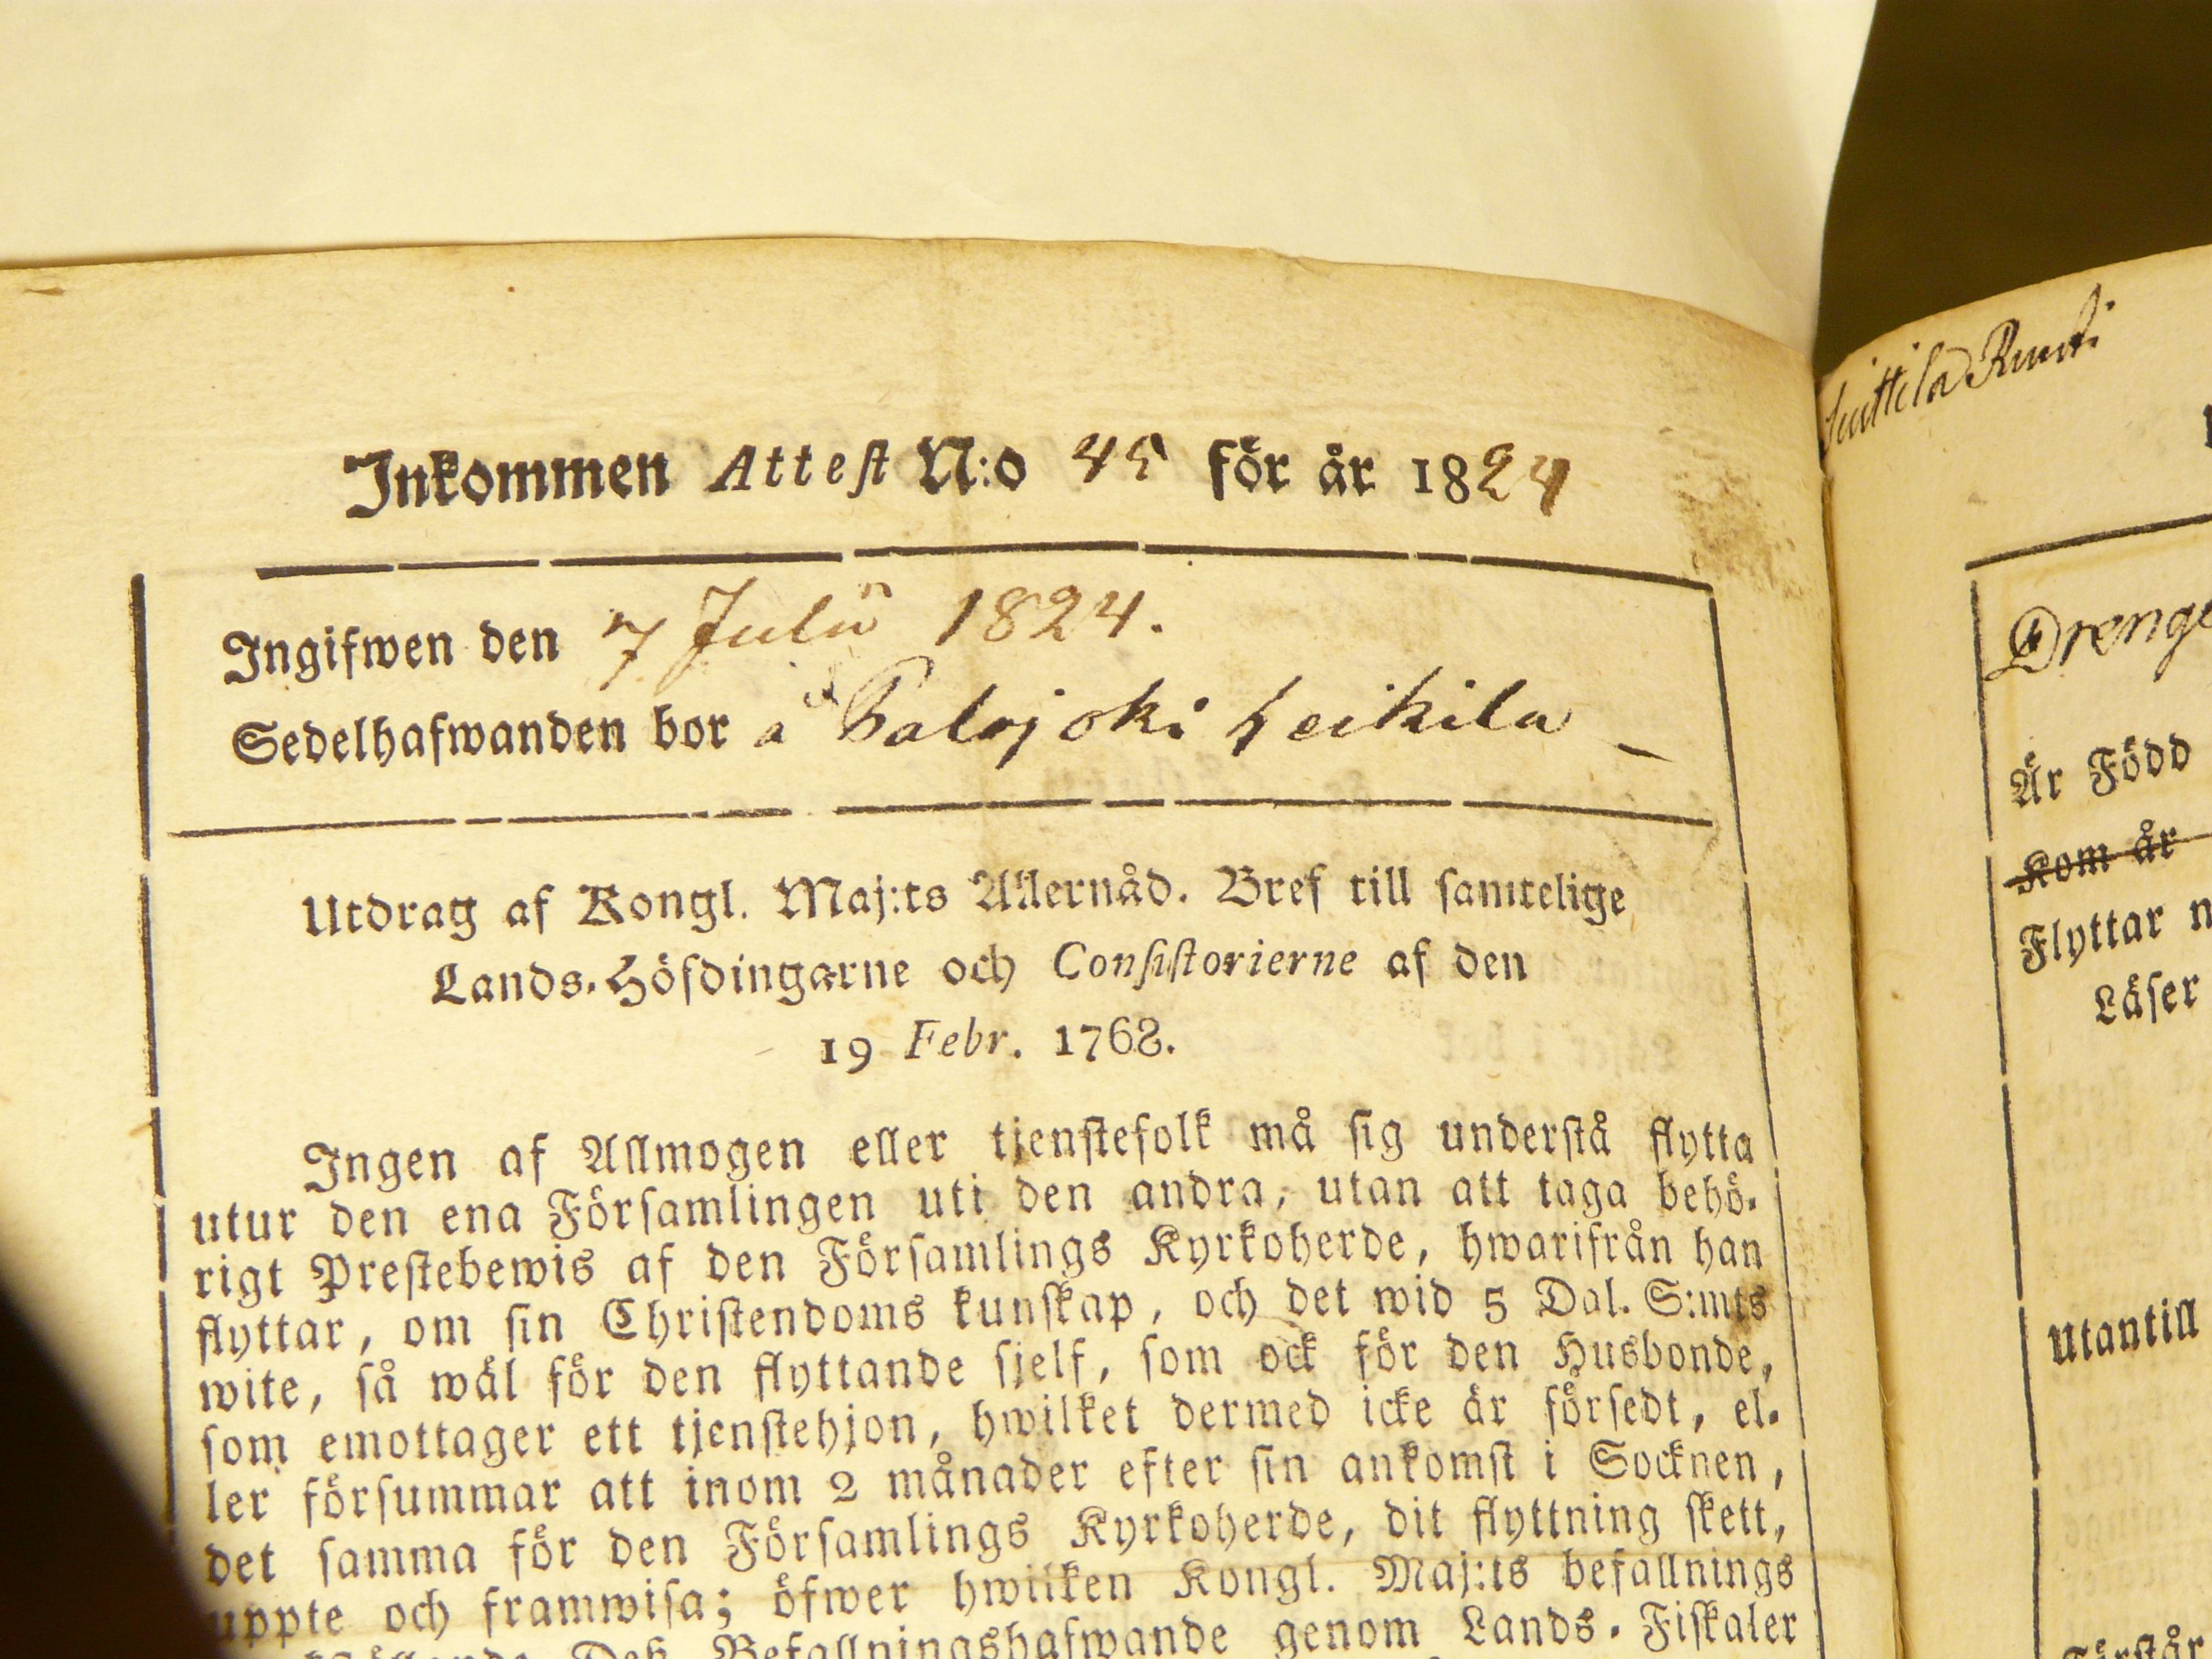 Inkommen Attest N:o 45 för år 1824
Ingifwen den 7 Julii 1824.
Sedelhafwanden bor å Palojoki Heikila
Utdrag af Kongl. Maj:ts Allernåd. Bref till samtelige
Lands-Höfdingarne och Consistorierne af den
19 Febr. 1768.
Ingen af Allmogen eller tjenstefolk må sig understå flytta
utur den ena Församlingen uti den andra, utan att taga behö-
rigt Prestebewis af den Församlings Kyrkoherde, hwarifrån han
flyttar, om sin Christendoms kunskap, och det wid 5 Dal. S:mts
wite, så wäl för den flyttande sjelf, som ock för den Husbonde,
som emottager ett tjenstehjon, hwilket dermed icke är försedt, el-
ler försummar att inom 2 månader efter sin ankomst i Socknen,
det samma för den Församlings Kyrkoherde, dit flyttning skett,
uppte och framwisa; öfwer hwilken Kongl. Maj:ts befallnings
Deß Befallningshafwande genom Lands-Fiskaler
Drenge
Är Född
Kom år
Flyttar n
Läser
Utantill